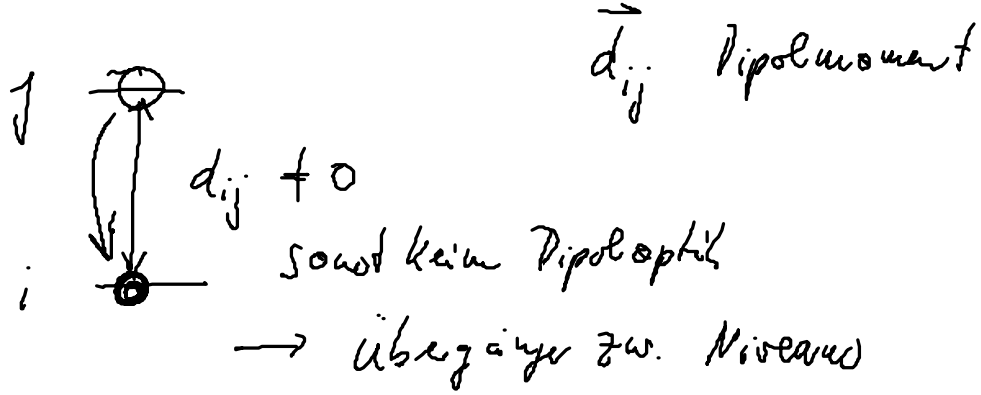 j
d⃗ij Dipolmoment
dij ≠ 0
sonst keine Dipoloptik
i
→ Übergänge zw. Niveaus